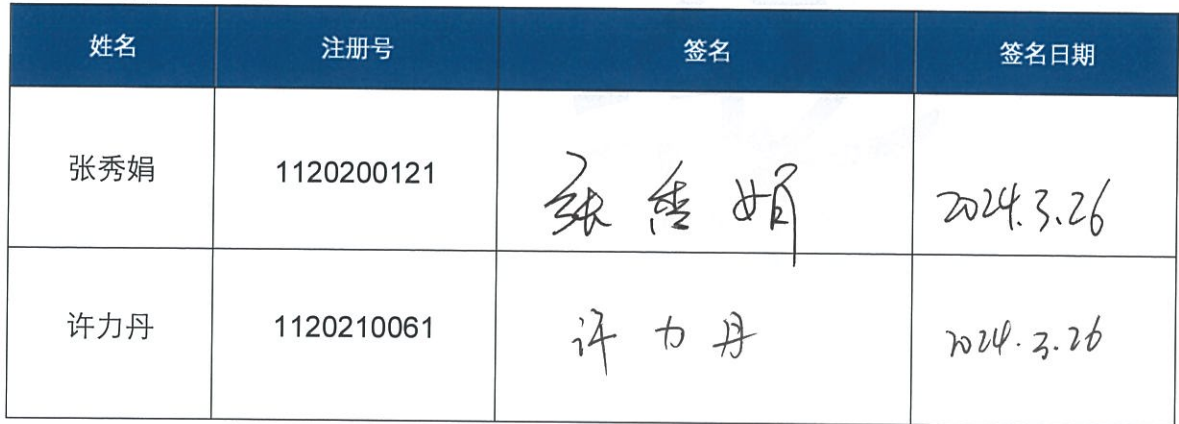 姓名 注册号 签名 签名日期
张秀娟 1120200121 张秀娟 2024.3.26
许力丹 1120210061 许力丹 2024.3.26